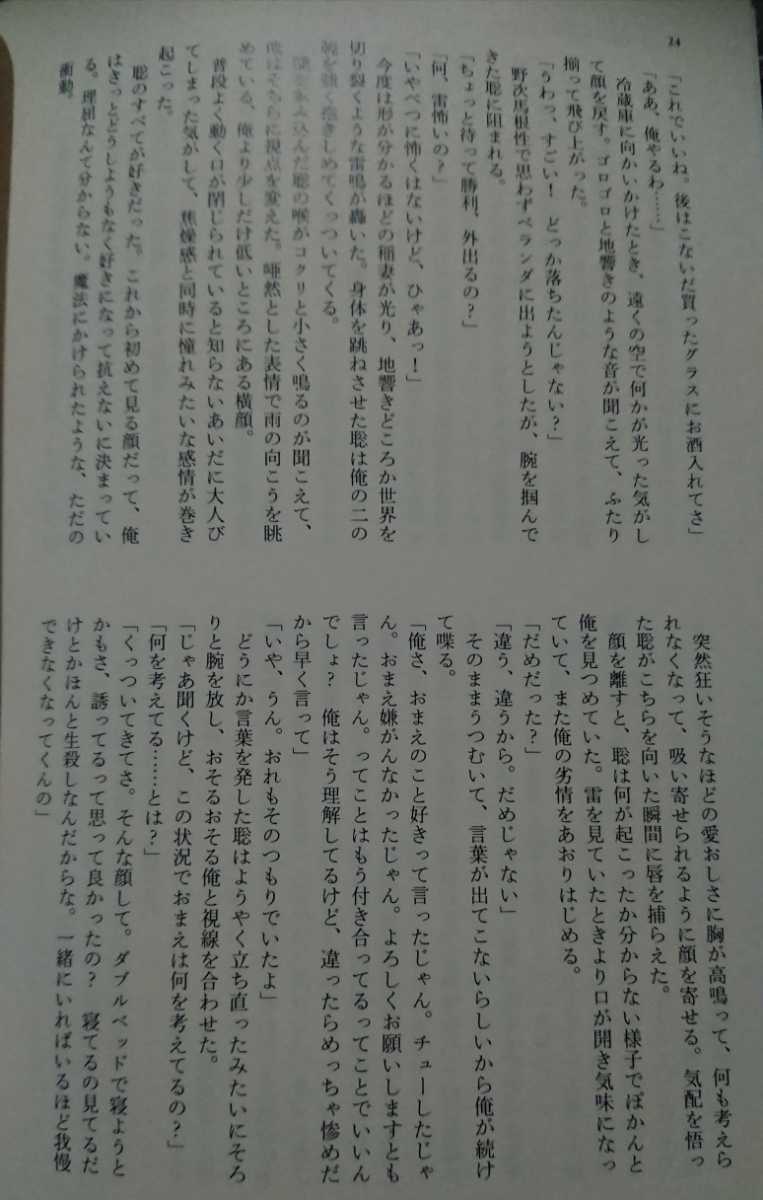 24
「これでいいね。後はこないだ買ったグラスにお酒入れてさ」
「ああ、俺やるわ……」
冷蔵庫に向かいかけたとき、遠くの空で何かが光った気がし
て顔を戻す。ゴロゴロと地響きのような音が聞こえて、ふたり
揃って飛び上がった。
「うわっ、すごい！　どっか落ちたんじゃない？」
野次馬根性で思わずベランダに出ようとしたが、腕を掴んで
きた聡に阻まれる。
「ちょっと待って勝利、外出るの？」
「何、雷怖いの？」
「いやべつに怖くはないけど、ひゃあっ！」
今度は形が分かるほどの稲妻が光り、地響きどころか世界を
切り裂くような雷鳴が轟いた。身体を跳ねさせた聡は俺の二の
腕を強く抱きしめてくっついてくる。
唾を飲み込んだ聡の喉がコクリと小さく鳴るのが聞こえて、
俺はそちらに視点を変えた。唖然とした表情で雨の向こうを眺
めている、俺より少しだけ低いところにある横顔。
普段よく動く口が閉じられていると知らないあいだに大人び
てしまった気がして、焦燥感と同時に憧れみたいな感情が巻き
起こった。
聡のすべてが好きだった。これから初めて見る顔だって、俺
はきっとどうしようもなく好きになって抗えないに決まってい
る。理屈なんて分からない。魔法にかけられたような、ただの
衝動。
突然狂いそうなほどの愛おしさに胸が高鳴って、何も考えら
れなくなって、吸い寄せられるように顔を寄せる。気配を悟っ
た聡がこちらを向いた瞬間に唇を捕らえた。
顔を離すと、聡は何が起こったか分からない様子でぽかんと
俺を見つめていた。雷を見ていたときより口が開き気味になっ
ていて、また俺の劣情をあおりはじめる。
「だめだった？」
「違う、違うから。だめじゃない」
そのままうつむいて、言葉が出てこないらしいから俺が続け
て喋る。
「俺さ、おまえのこと好きって言ったじゃん。チューしたじゃ
ん。おまえ嫌がんなかったじゃん。よろしくお願いしますとも
言ったじゃん。ってことはもう付き合ってるってことでいいん
でしょ？　俺はそう理解してるけど、違ったらめっちゃ惨めだ
から早く言って」
「いや、うん。おれもそのつもりでいたよ」
どうにか言葉を発した聡はようやく立ち直ったみたいにそろ
りと腕を放し、おそるおそる俺と視線を合わせた。
「じゃあ聞くけど、この状況でおまえは何を考えてるの？」
「何を考えてる……とは？」
「くっついてきてさ。そんな顔して。ダブルベッドで寝ようと
かもさ、誘ってるって思って良かったの？　寝てるの見てるだ
けとかほんと生殺しなんだからな。一緒にいればいるほど我慢
できなくなってくんの」